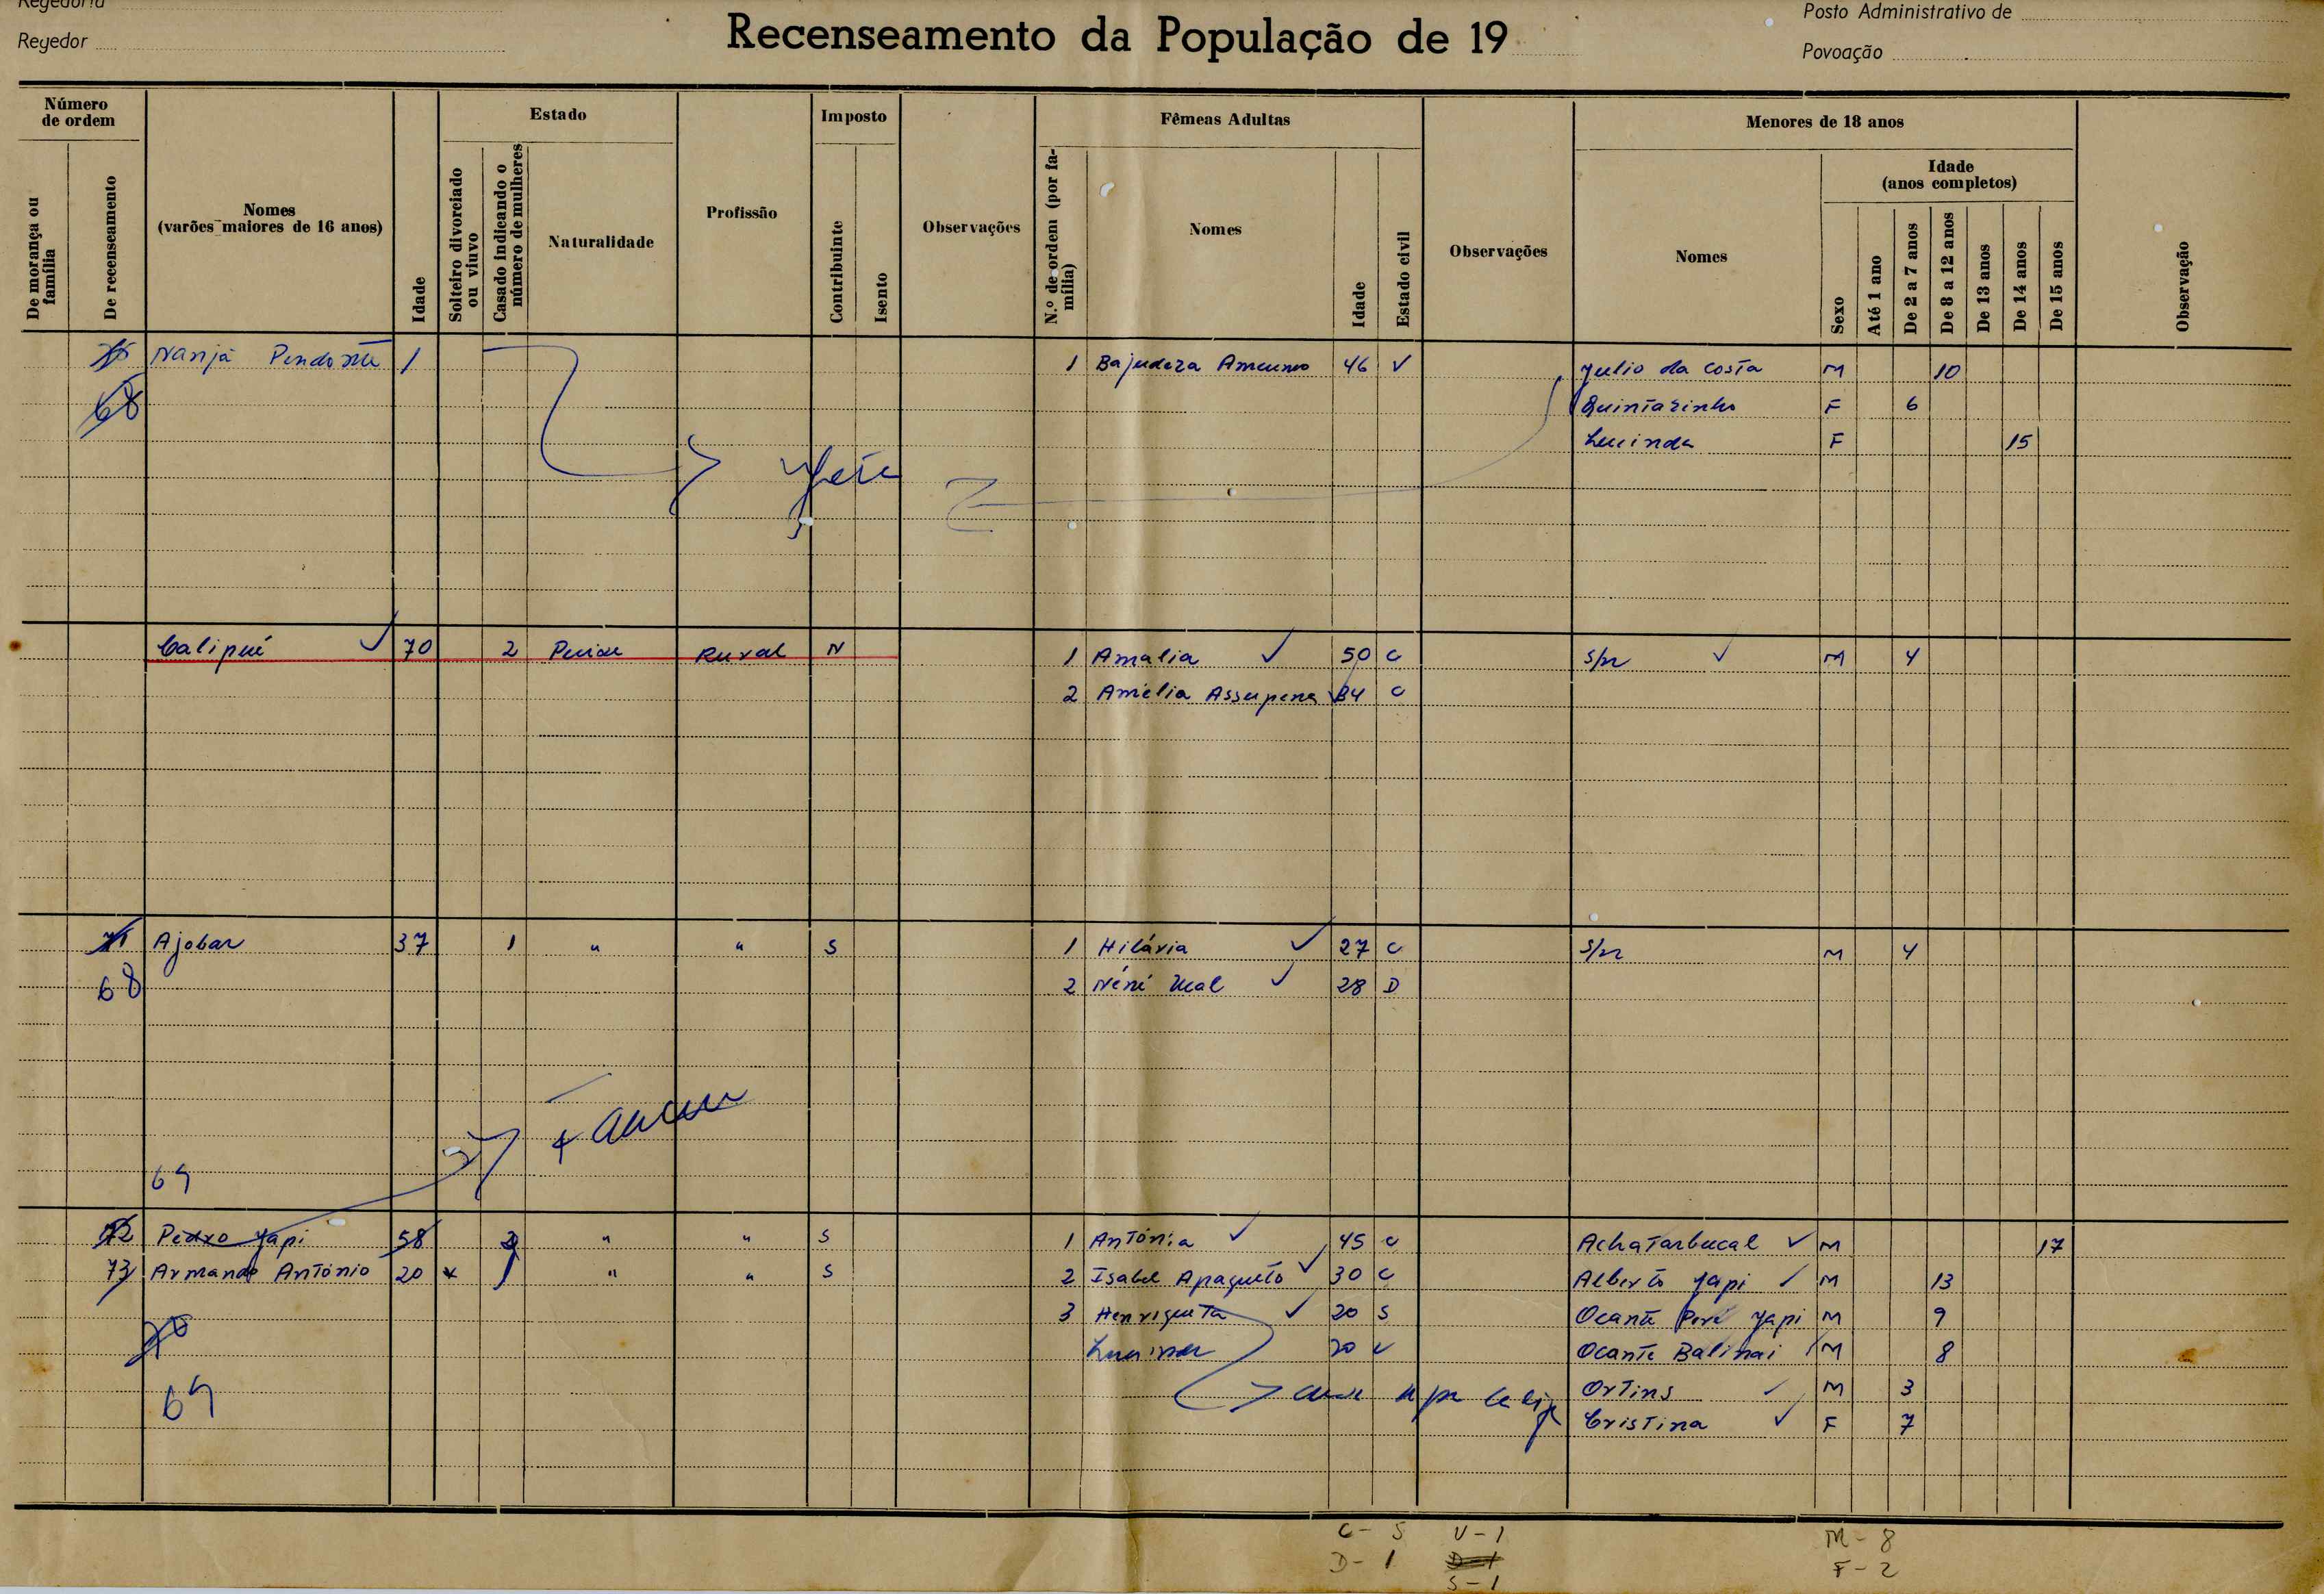 Regedoria
Regedor
Recenseamento da População de 19
Posto Administrativo de
Povoação
Número de ordem
De morança ou família
De recenseamento
Nomes (varões maiores de 16 anos)
Idade
Estado
Solteiro divorciado ou viuvo
Casado indicando o número de mulheres
Naturalidade
Profissão
Imposto
Contribuinte
Isento
Observações
Fêmeas Adultas
N.º de ordem (por família)
Nomes
Idade
Estado civil
Observações
Menores de 18 anos
Nomes
Sexo
Idade (anos completos)
Até 1 ano
De 2 a 7 anos
De 8 a 12 anos
De 13 anos
De 14 anos
De 15 anos
Observação
Nanja 1 1 46 V Julio da Costa M 10
68 Quintazinho F 6
Lucinda F 15
Calipué 70 2 Rural N 1 Amalia 50 C s/n M 4
2 Amélia 34 C
71 Ajobar 37 1 " " S 1 Hilária 27 C s/n M 4
68 2 Néné Ucal 28 D
69
72 Pedro Yapi 58 2 " " S 1 Antónia 45 C Achatarbucal M 17
73 Armando António 20 " " S 2 Isabel Apagueto 30 C Alberto Yapi M 13
3 Henriqueta 20 S Ocante Peré Yapi M 9
70 Lucinda 20 Ocante Balinai M 8
69 Ortins M 3
Cristina F 7
C - 5 V - 1 M - 8
D - 1 D - 1 F - 2
S - 1